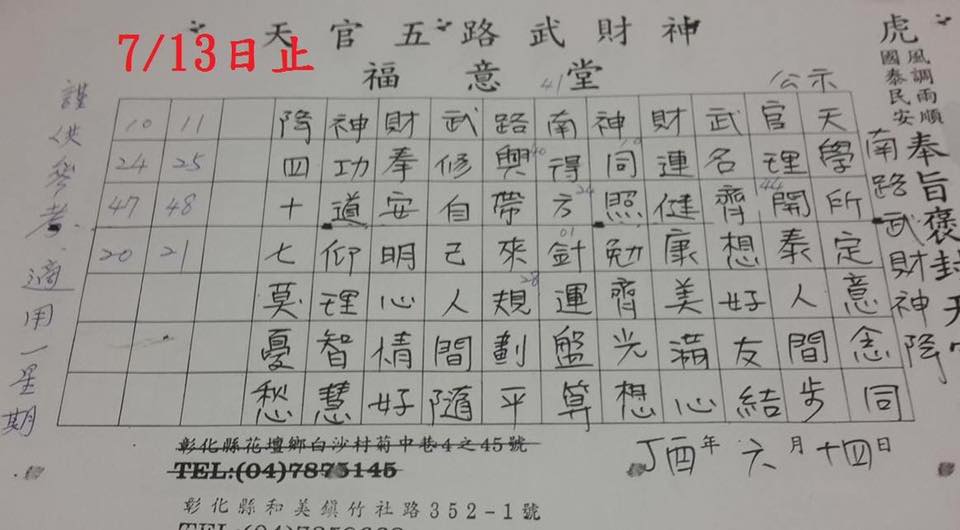 7/13日止
天官五路武財神
福意堂
41
公示
虎
風調雨順
國泰民安
奉旨褒封天官
南路武財神降
天學所定意念同
官理開泰人間步
武名齊想好友結
財連健康美滿心
神同照勉齊光想
南得方針運盤算
路興帶來規劃平
武修自己人間隨
財奉安明心情好
神功道仰理智慧
降四十七莫憂愁
10
40
24
44
01
28
11 25 48 21
10 24 47 20
謹供參考.適用一星期
丁酉年六月十四日
彰化縣花壇鄉白沙村菊中巷4之45號
TEL:(04)7875145
彰化縣和美鎮竹社路352-1號